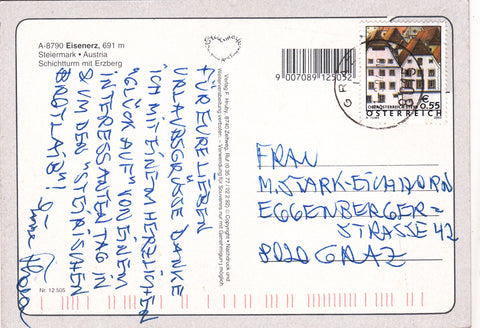 A-8790 Eisenerz, 691 m
Steiermark • Austria
Schichtturm mit Erzberg
FÜR EURE LIEBEN
URLAUBSGRÜSSE DANKE
ICH MIT EINEM HERZLICHEN
"GLÜCK AUF" VON EINEM
INTERESSANTEN TAG IN
& UM DEN "STEIRISCHEN
BROTLAIB"!
Nr. 12.505
Verlag F. 8740 Zeltweg,
Wiederverkäufer verboten. - Verwendung für Souvenirs nur mit Genehmigung möglich.
© Copyright • Nachdruck und
9 007089 125052
€ 0.55
ÖSTERREICH
FRAU
M. STARK-EICHHORN
EGGENBERGER=
STRASSE 42
8020 GRAZ